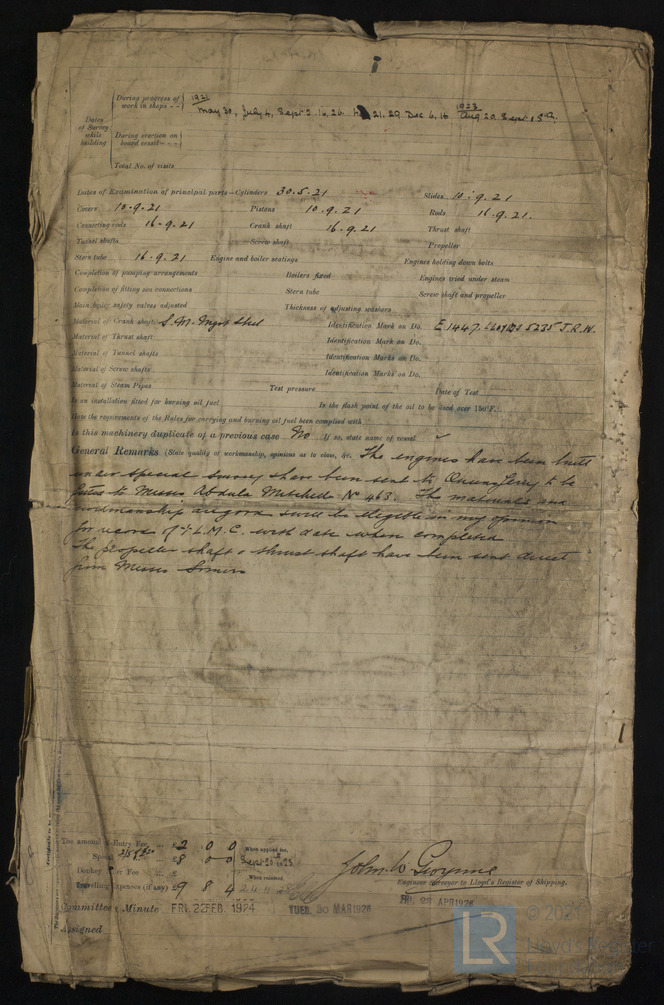 During progress of work in shops - - 1921 May 30, July 4, Sept 2. 16. 26. 21. 29 Dec 6. 16 1923 Aug 20. Sept 13th.
Dates of Survey while building
During erection on board vessel - -
Total No. of visits
Dates of Examination of principal parts—Cylinders 30.5.21 Slides 10.9.21
Covers 10.9.21 Pistons 10.9.21 Rods 16.9.21.
Connecting rods 16.9.21 Crank shaft 16.9.21 Thrust shaft
Tunnel shafts Screw shaft Propeller
Stern tube 16.9.21 Engine and boiler seatings Engines holding down bolts
Completion of pumping arrangements Boilers fixed Engines tried under steam
Completion of fitting sea connections Stern tube Screw shaft and propeller
Main boiler safety valves adjusted Thickness of adjusting washers
Material of Crank shaft S.M. Ingot Steel Identification Mark on Do. E 1447. LLOYDS 5235 J.R.W.
Material of Thrust shaft Identification Mark on Do.
Material of Tunnel shafts Identification Marks on Do.
Material of Screw shafts Identification Marks on Do.
Material of Steam Pipes Test pressure Date of Test
Is an installation fitted for burning oil fuel Is the flash point of the oil to be used over 150°F.
Have the requirements of the Rules for carrying and burning oil fuel been complied with
Is this machinery duplicate of a previous case No If so, state name of vessel ✓
General Remarks (State quality of workmanship, opinions as to class, &c. The engines have been built
under special survey & have been sent to Queensferry to be
fitted to Messrs Abdela Mitchells No 463. The materials and
workmanship are good & will be eligible in my opinion
for record of + L.M.C. with date when completed
The propeller shaft & thrust shaft have been sent direct
from Messrs Somers
The amount of Entry Fee .. £ 2 0 0 When applied for,
Special .. £ 8 0 0 Sept 20 1923
Donkey Boiler Fee .. £ When received,
Travelling Expenses (if any) £ 9 8 4
John W Gwynne
Engineer Surveyor to Lloyd's Register of Shipping.
Committee's Minute FRI. 22 FEB. 1924 TUES. 30 MAR 1926 FRI. 23 APR 1926
Assigned
LR
© 2021
Lloyd's Register
Foundation